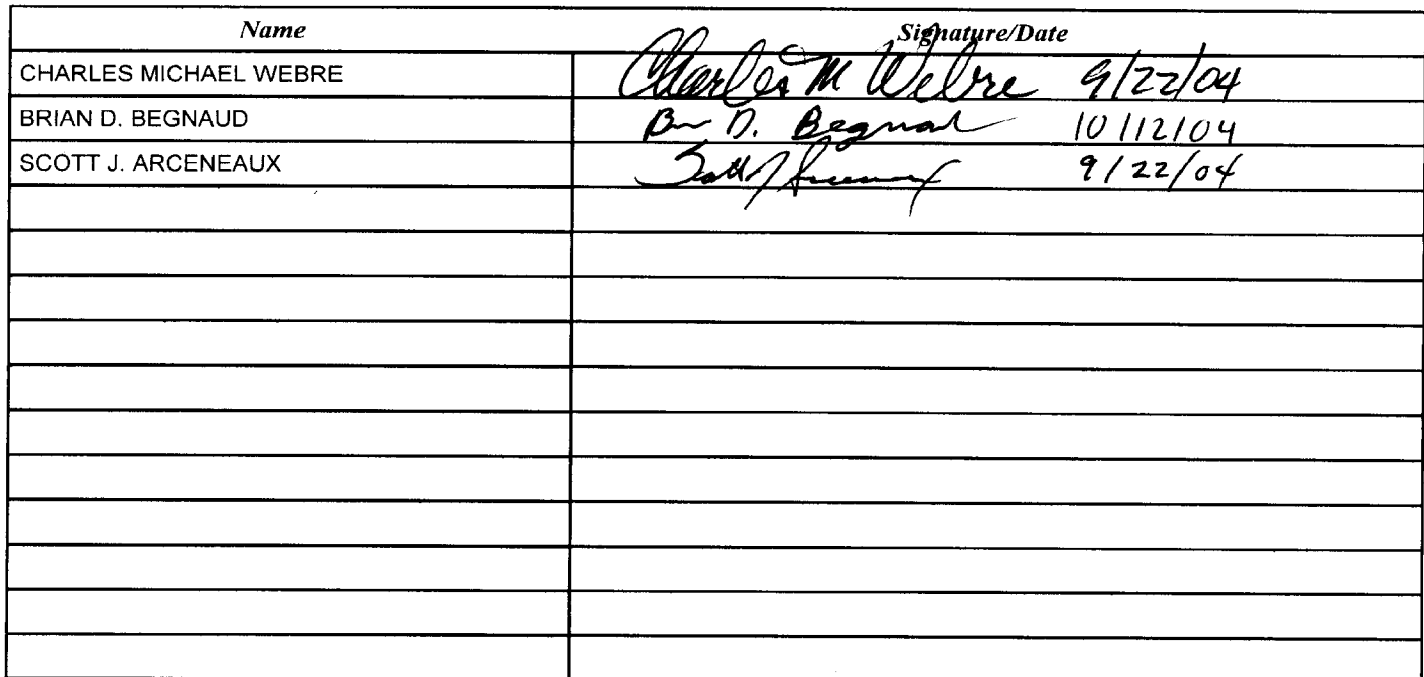 Name Signature/Date
CHARLES MICHAEL WEBRE Charles M Webre 9/22/04
BRIAN D. BEGNAUD D. Begnaud 10/12/04
SCOTT J. ARCENEAUX Scott J 9/22/04